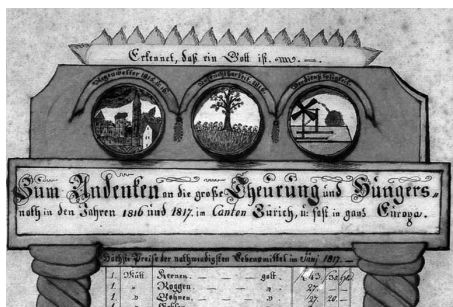 Erkennet, daß ein Gott ist.
Regenwetter 1815 & 16.
Fruchtbarkeit 1816.
Zum Andenken an die große Theurung und Hungers-
noth in den Jahren 1816 und 1817. im Canton Zürich, u: fast in ganz Europa.
Höchste Preise der nothwendigsten Lebensmittel im Juni 1817.
1. Mütt Kernen. galt. 43
1. " Roggen. " 27.
1. " Bohnen. " 27. 20.